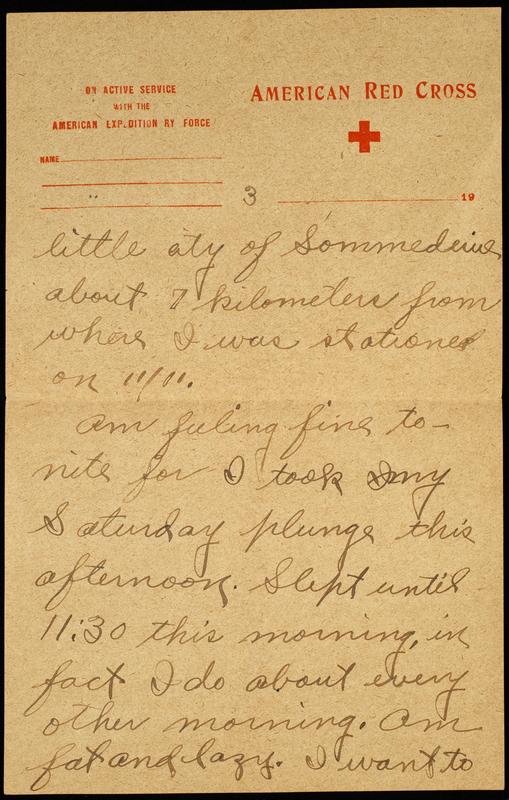 ON ACTIVE SERVICE
WITH THE
AMERICAN EXPEDITIONARY FORCE
AMERICAN RED CROSS
NAME
3
19
little city of Sommedieue
about 7 kilometers from
where I was stationed
on 11/11.
Am feeling fine to-
nite for I took my
Saturday plunge this
afternoon. Slept until
11:30 this morning, in
fact I do about every
other morning. Am
fat and lazy. I want to